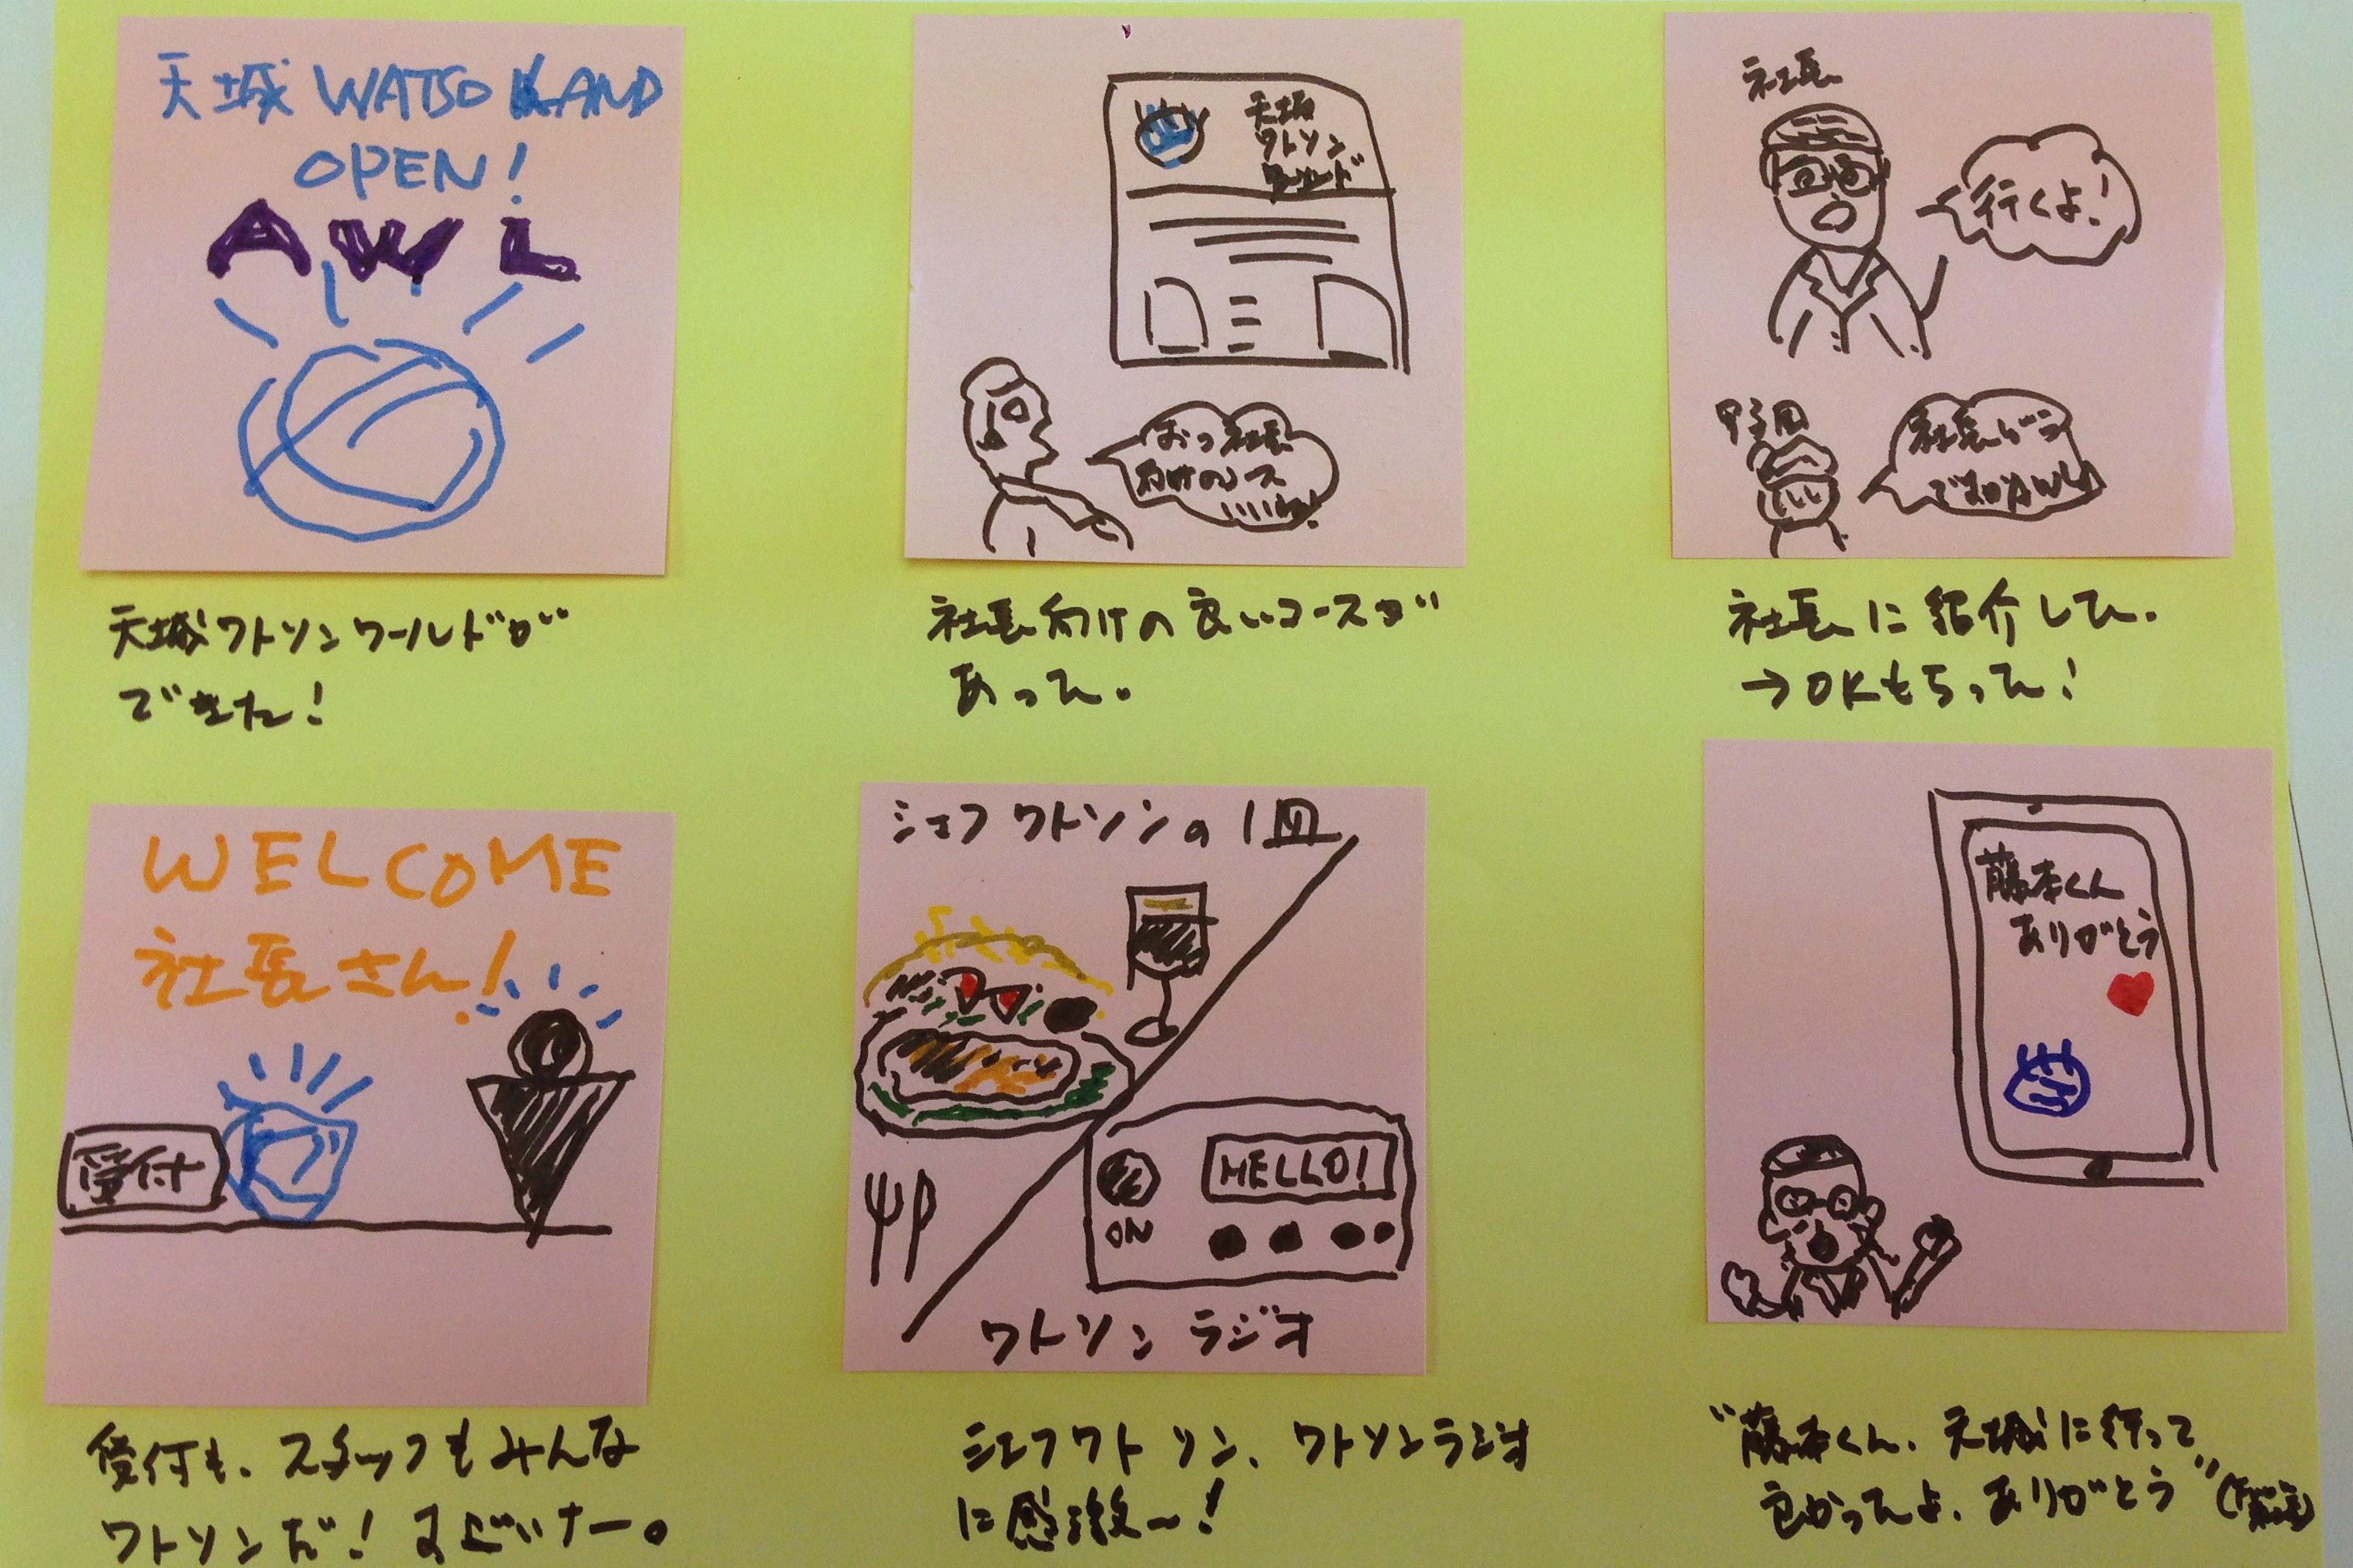 天城 WATSO LAND
OPEN!
AWL
天城ワトソンワールドが
できた!
天城
ワトソン
ワールド
おっ社長
向けのコース
いいね!
社長向けの良いコースが
あった。
社長
行くよ!
社長どう
ですか
社長に紹介した。
→OKもらった!
WELCOME
社長さん!
受付
受付も、スタッフもみんな
ワトソンだ! すごいナー。
シェフワトソンの1皿
HELLO!
ON
ワトソンラジオ
シェフワトソン、ワトソンラジオ
に感激〜!
藤本くん
ありがとう
"藤本くん、天城に行って
良かったよ、ありがとう"